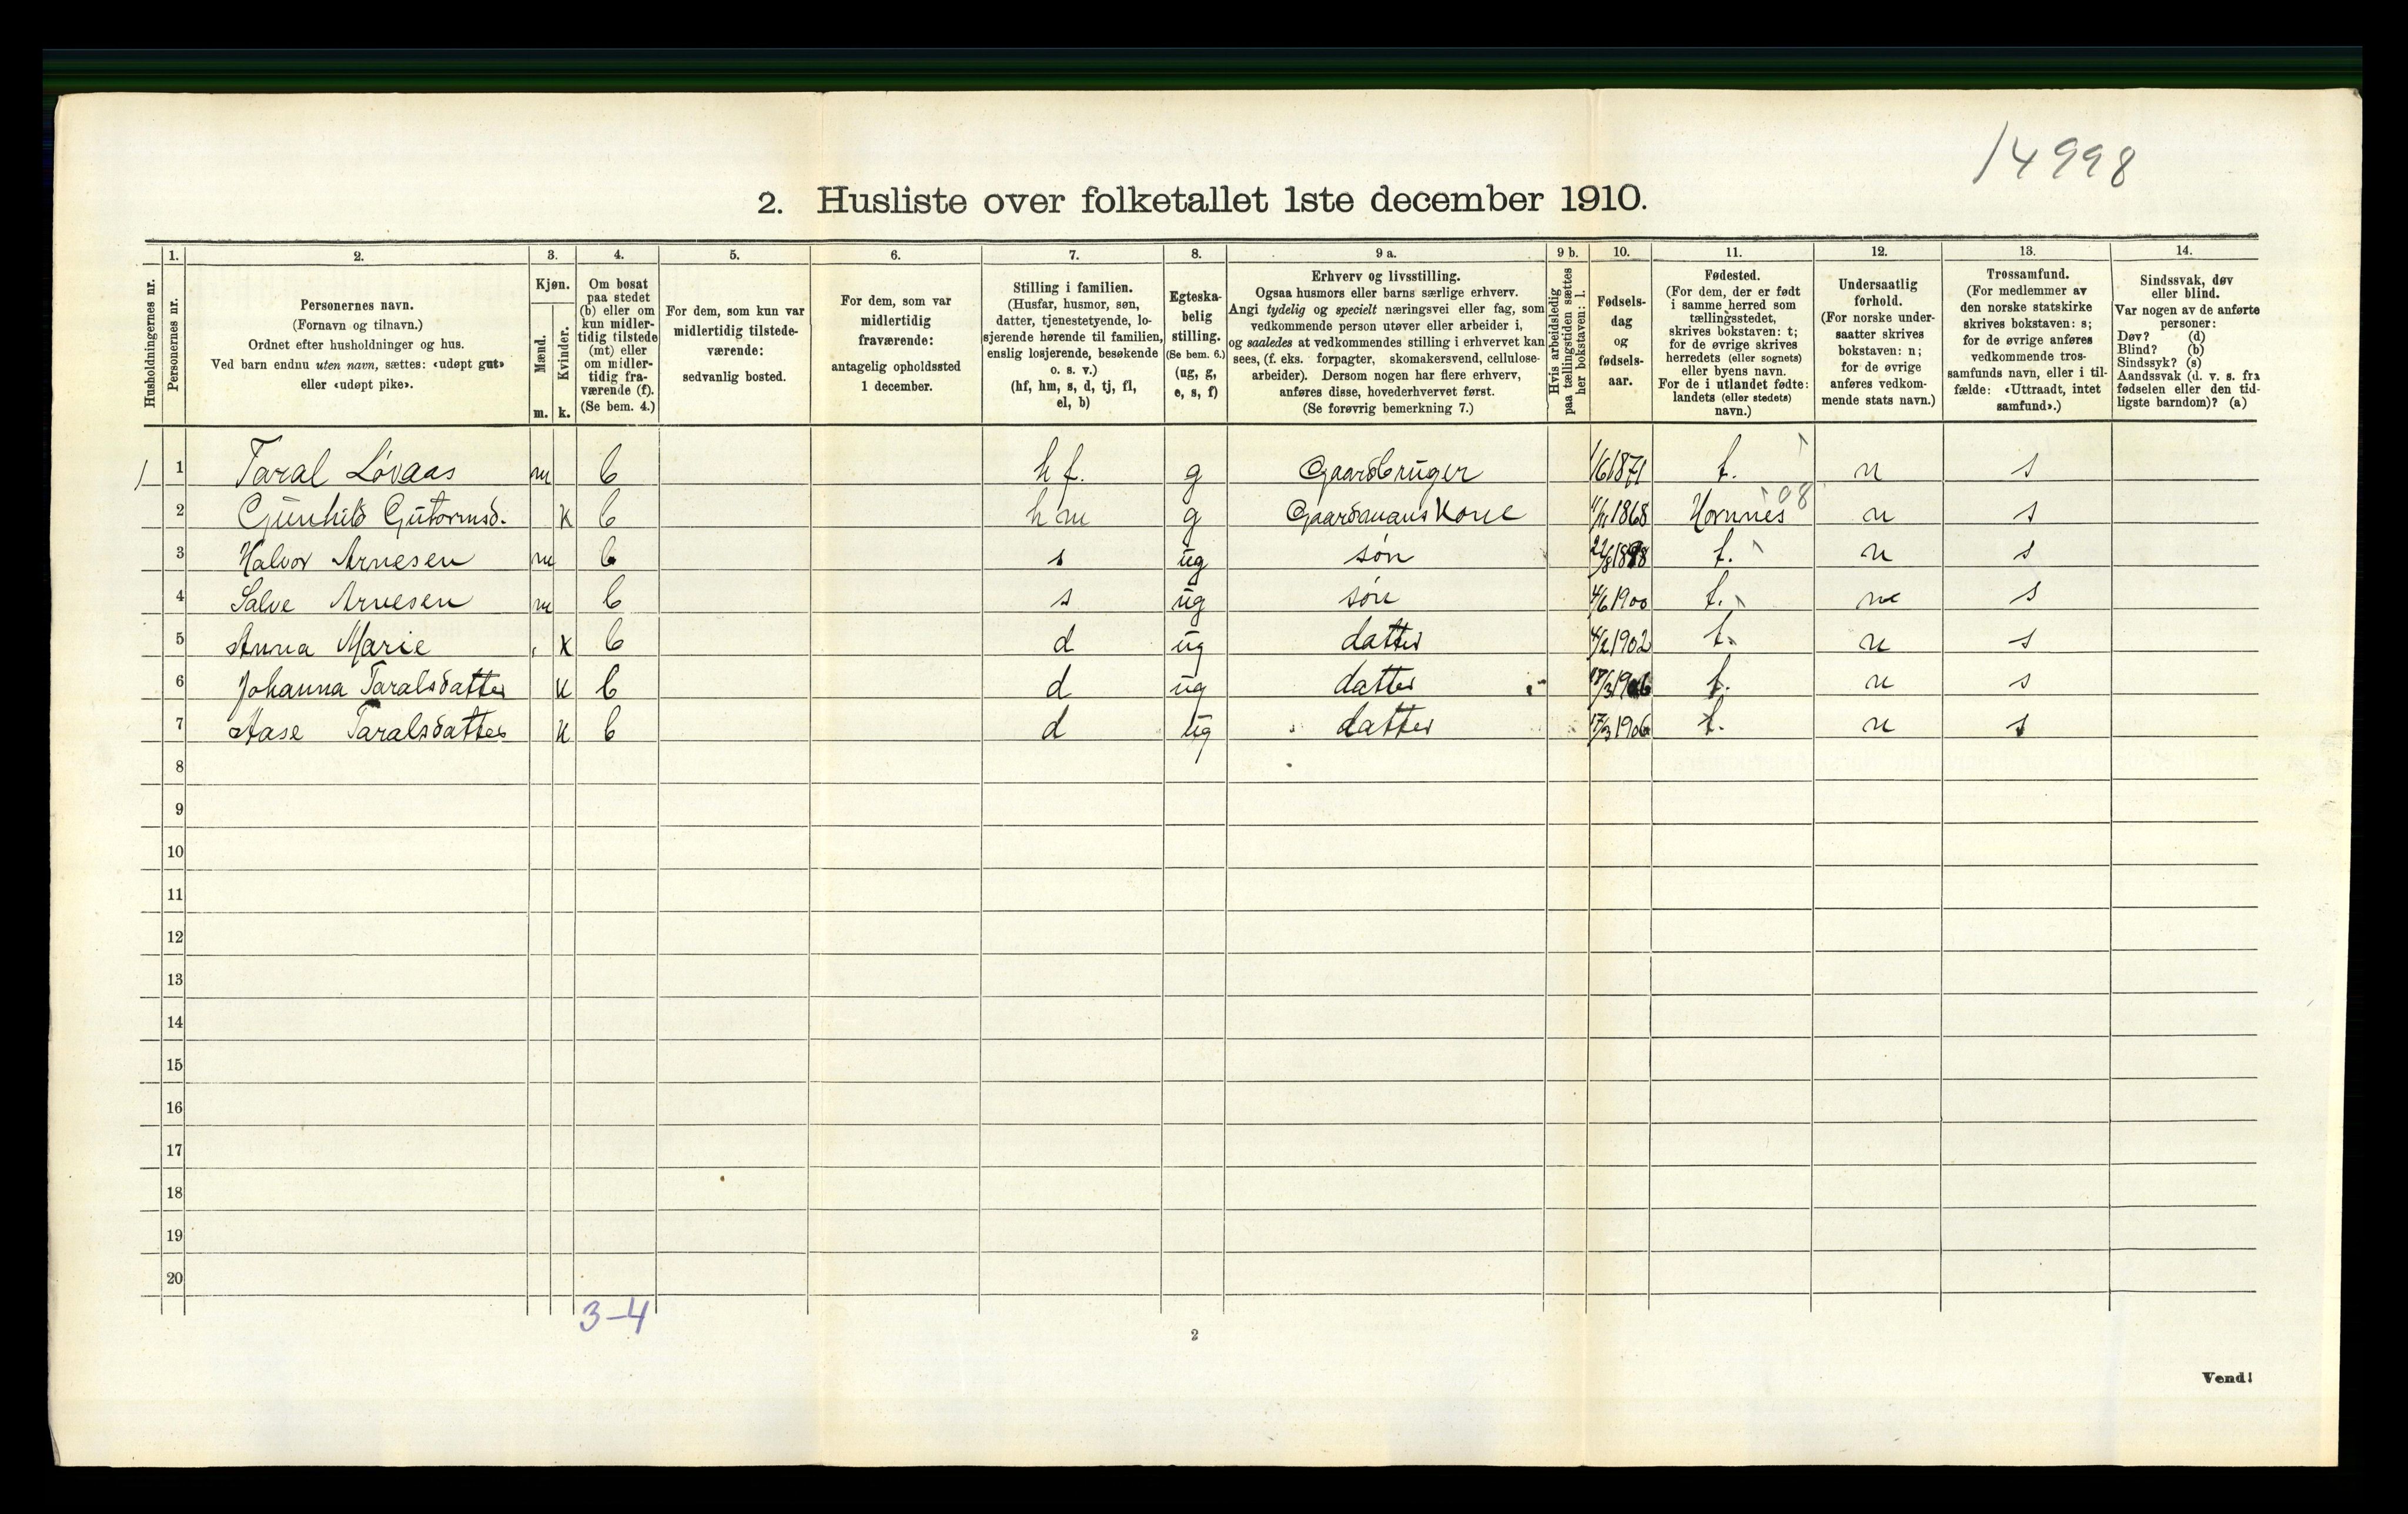 14998
2. Husliste over folketallet 1ste december 1910.
Husholdningernes nr.
1.
Personernes nr.
2.
Personernes navn.
(Fornavn og tilnavn.)
Ordnet efter husholdninger og hus.
Ved barn endnu uten navn, sættes: «udøpt gut»
eller «udøpt pike».
3.
Kjøn.
Mænd.
m.
Kvinder.
k.
4.
Om bosat
paa stedet
(b) eller om
kun midler-
tidig tilstede
(mt) eller
om midler-
tidig fra-
værende (f).
(Se bem. 4.)
5.
For dem, som kun var
midlertidig tilstede-
værende:
sedvanlig bosted.
6.
For dem, som var
midlertidig
fraværende:
antagelig opholdssted
1 december.
7.
Stilling i familien.
(Husfar, husmor, søn,
datter, tjenestetyende, lo-
sjerende hørende til familien,
enslig losjerende, besøkende
o. s. v.)
(hf, hm, s, d, tj, fl,
el, b)
8.
Egteska-
belig
stilling.
(Se bem. 6.)
(ug, g,
e, s, f)
9 a.
Erhverv og livsstilling.
Ogsaa husmors eller barns særlige erhverv.
Angi tydelig og specielt næringsvei eller fag, som
vedkommende person utøver eller arbeider i,
og saaledes at vedkommendes stilling i erhvervet kan
sees, (f. eks. forpagter, skomakersvend, cellulose-
arbeider). Dersom nogen har flere erhverv,
anføres disse, hovederhvervet først.
(Se forøvrig bemerkning 7.)
9 b.
Hvis arbeidsledig
paa tællingstiden sættes
her bokstaven: l.
10.
Fødsels-
dag
og
fødsels-
aar.
11.
Fødested.
(For dem, der er født
i samme herred som
tællingsstedet,
skrives bokstaven: t;
for de øvrige skrives
herredets (eller sognets)
eller byens navn.
For de i utlandet fødte:
landets (eller stedets)
navn.)
12.
Undersaatlig
forhold.
(For norske under-
saatter skrives
bokstaven: n;
for de øvrige
anføres vedkom-
mende stats navn.)
13.
Trossamfund.
(For medlemmer av
den norske statskirke
skrives bokstaven: s;
for de øvrige anføres
vedkommende tros-
samfunds navn, eller i til-
fælde: «Uttraadt, intet
samfund».)
14.
Sindssvak, døv
eller blind.
Var nogen av de anførte
personer:
Døv? (d)
Blind? (b)
Sindssyk? (s)
Aandssvak (d. v. s. fra
fødselen eller den tid-
ligste barndom)? (a)
1 1 Taral Løvaas m b hf. g Gaardbruger 1/6 1871 t. n s
2 Gunhild Gutormsd. K b hm g Gaardmans Kone 11/11 1868 Hornnes 98 n s
3 Halvor Arnesen m b s ug søn 1898 t. n s
4 Salve Arnesen m b s ug søn 4/6 1900 t. n s
5 Anna Marie K b d ug datter 4/2 1902 t. n s
6 Johanna Taralsdatter K b d ug datter 17/3 1906 t. n s
7 Aase Taralsdatter K b d ug datter 17/3 1906 t. n s
8
9
10
11
12
13
14
15
16
17
18
19
20
3-4
2
Vend!